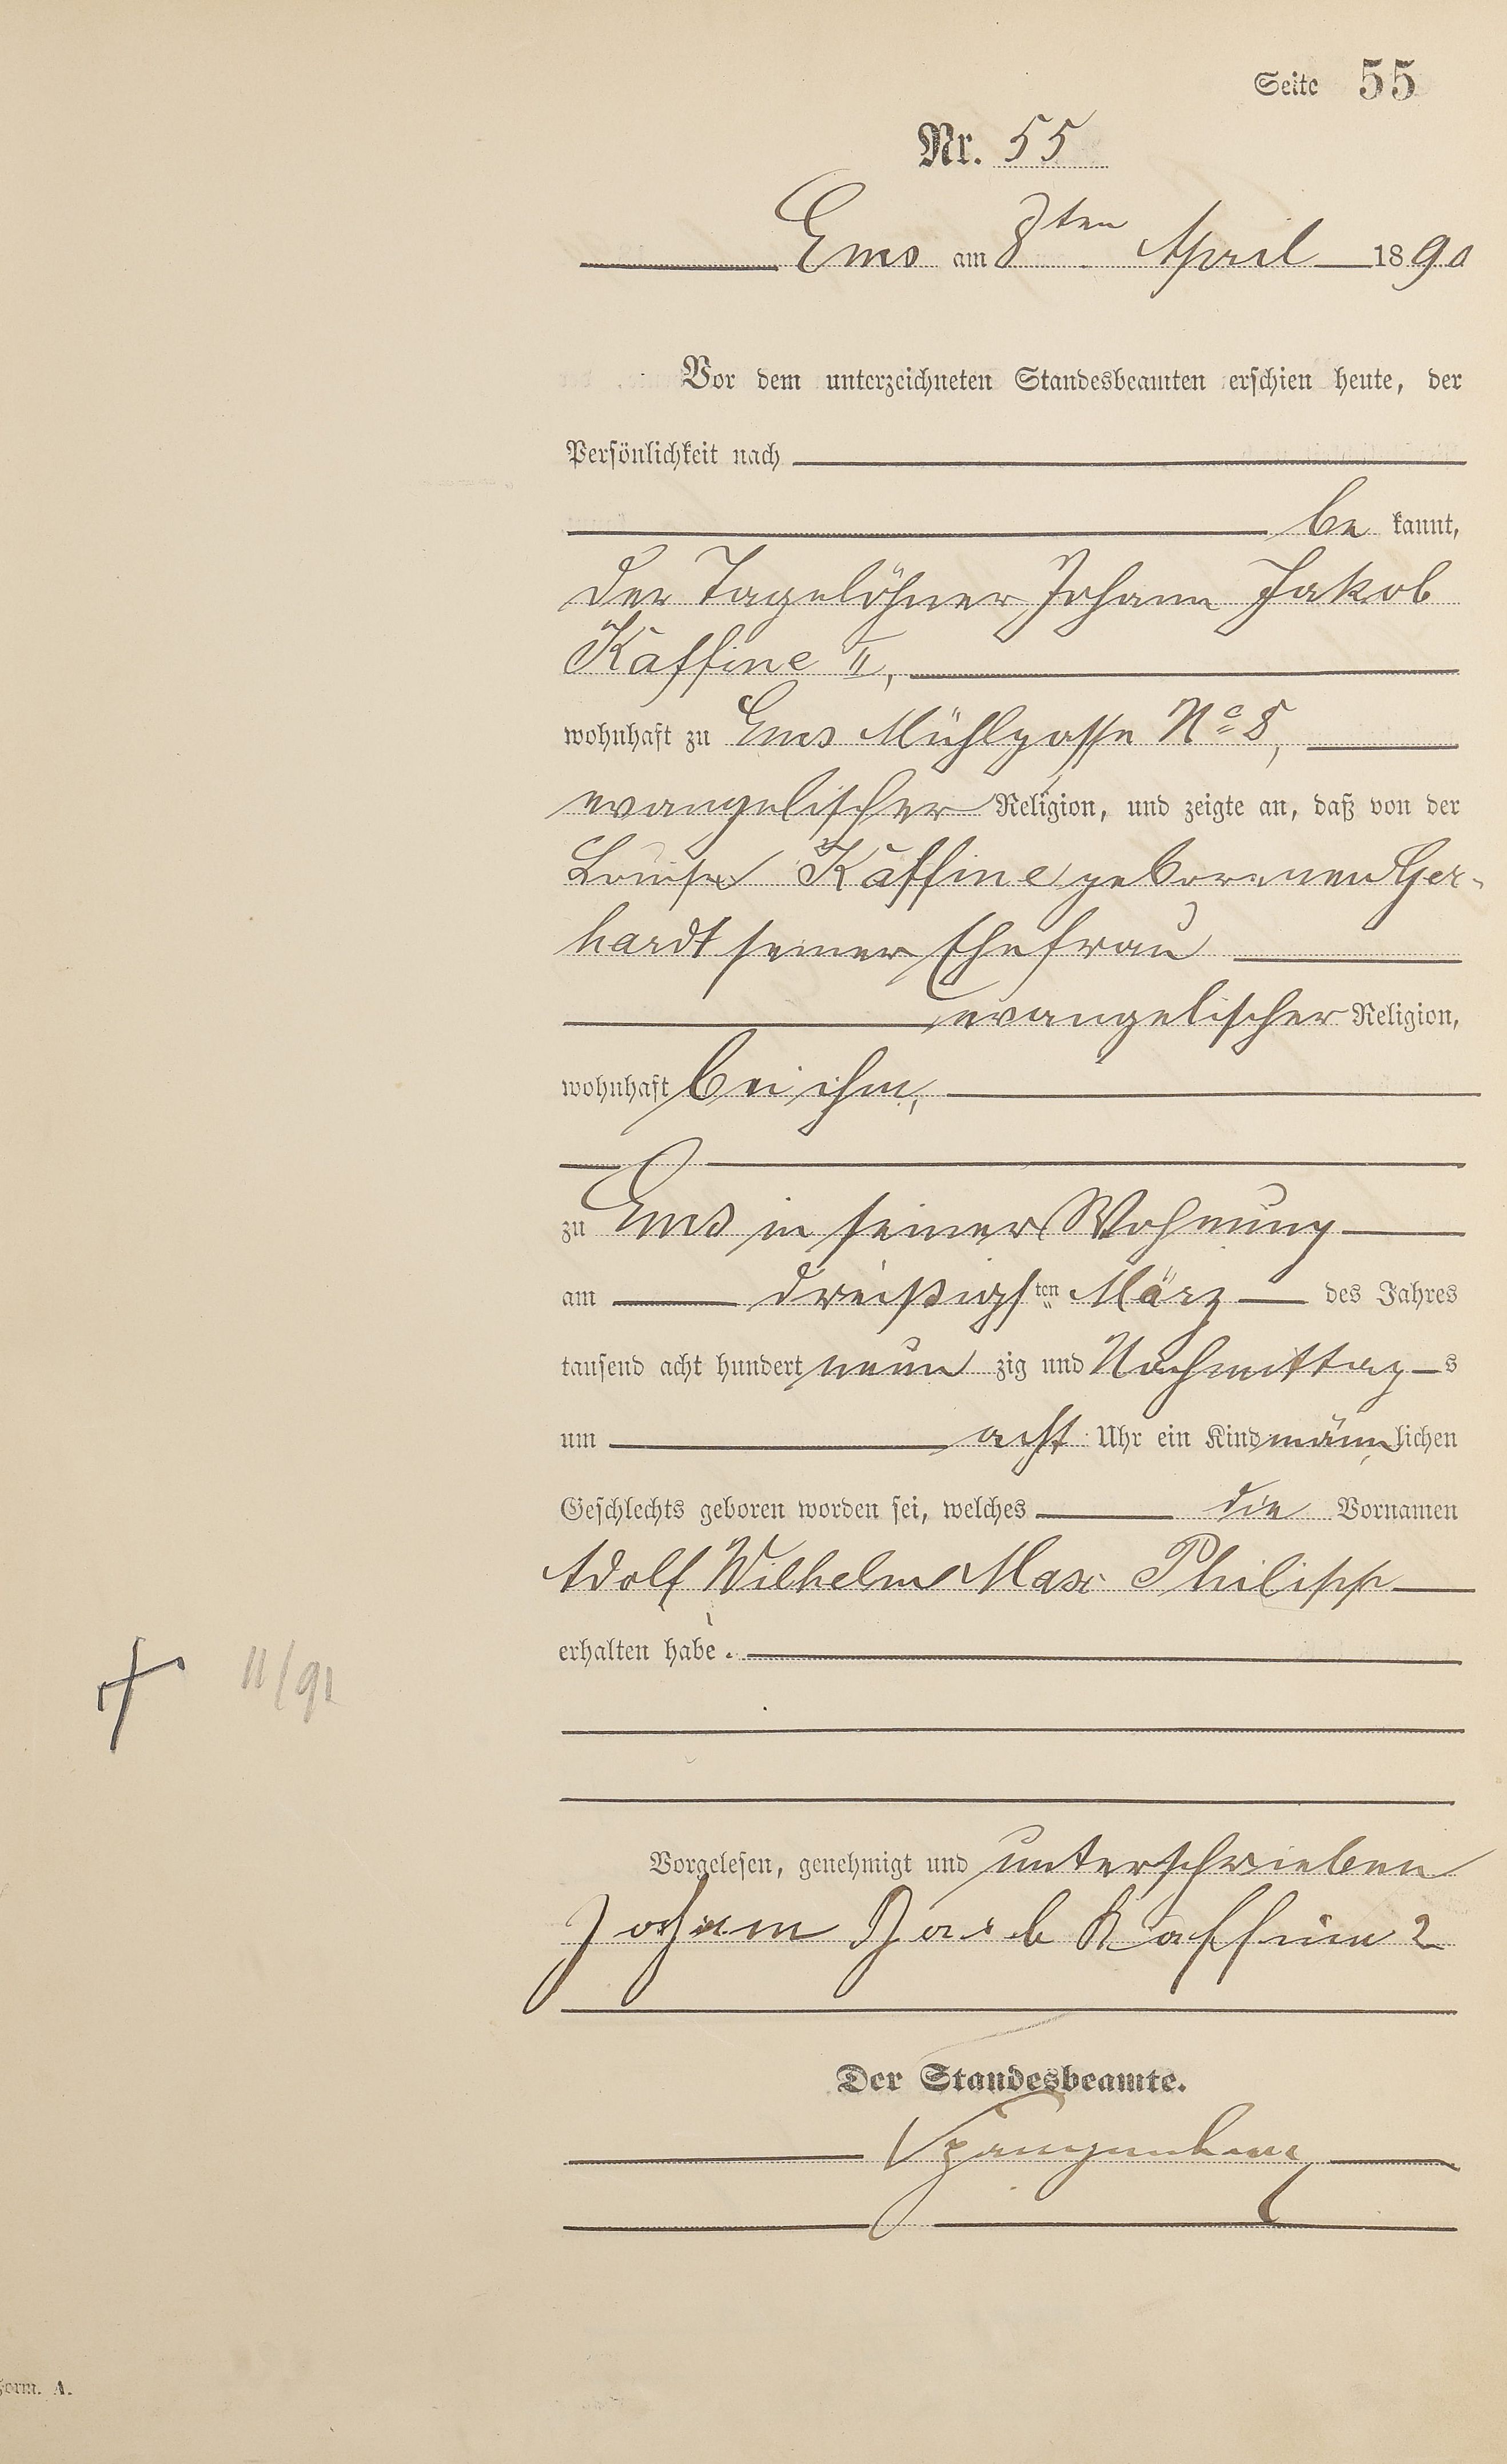 Seite 55
Nr. 55
Ems am 8ten April 1890
Vor dem unterzeichneten Standesbeamten erschien heute, der
Persönlichkeit nach
be kannt,
der Tagelöhner Johann Jakob
Kaffine II,
wohnhaft zu Ems Mühlgasse No 8,
evangelischer Religion, und zeigte an, daß von der
Louise Kaffine geborenen Ger-
hardt seiner Ehefrau
evangelischer Religion,
wohnhaft bei ihm,
zu Ems in seiner Wohnung
am dreißigsten März des Jahres
tausend acht hundert neun zig und Nachmittag s
um acht Uhr ein Kind männ lichen
Geschlechts geboren worden sei, welches die Vornamen
Adolf Wilhelm Max Philipp
erhalten habe.
† 11/91
Vorgelesen, genehmigt und unterschrieben
Johann Kaffine 2
Der Standesbeamte.
Form. A.